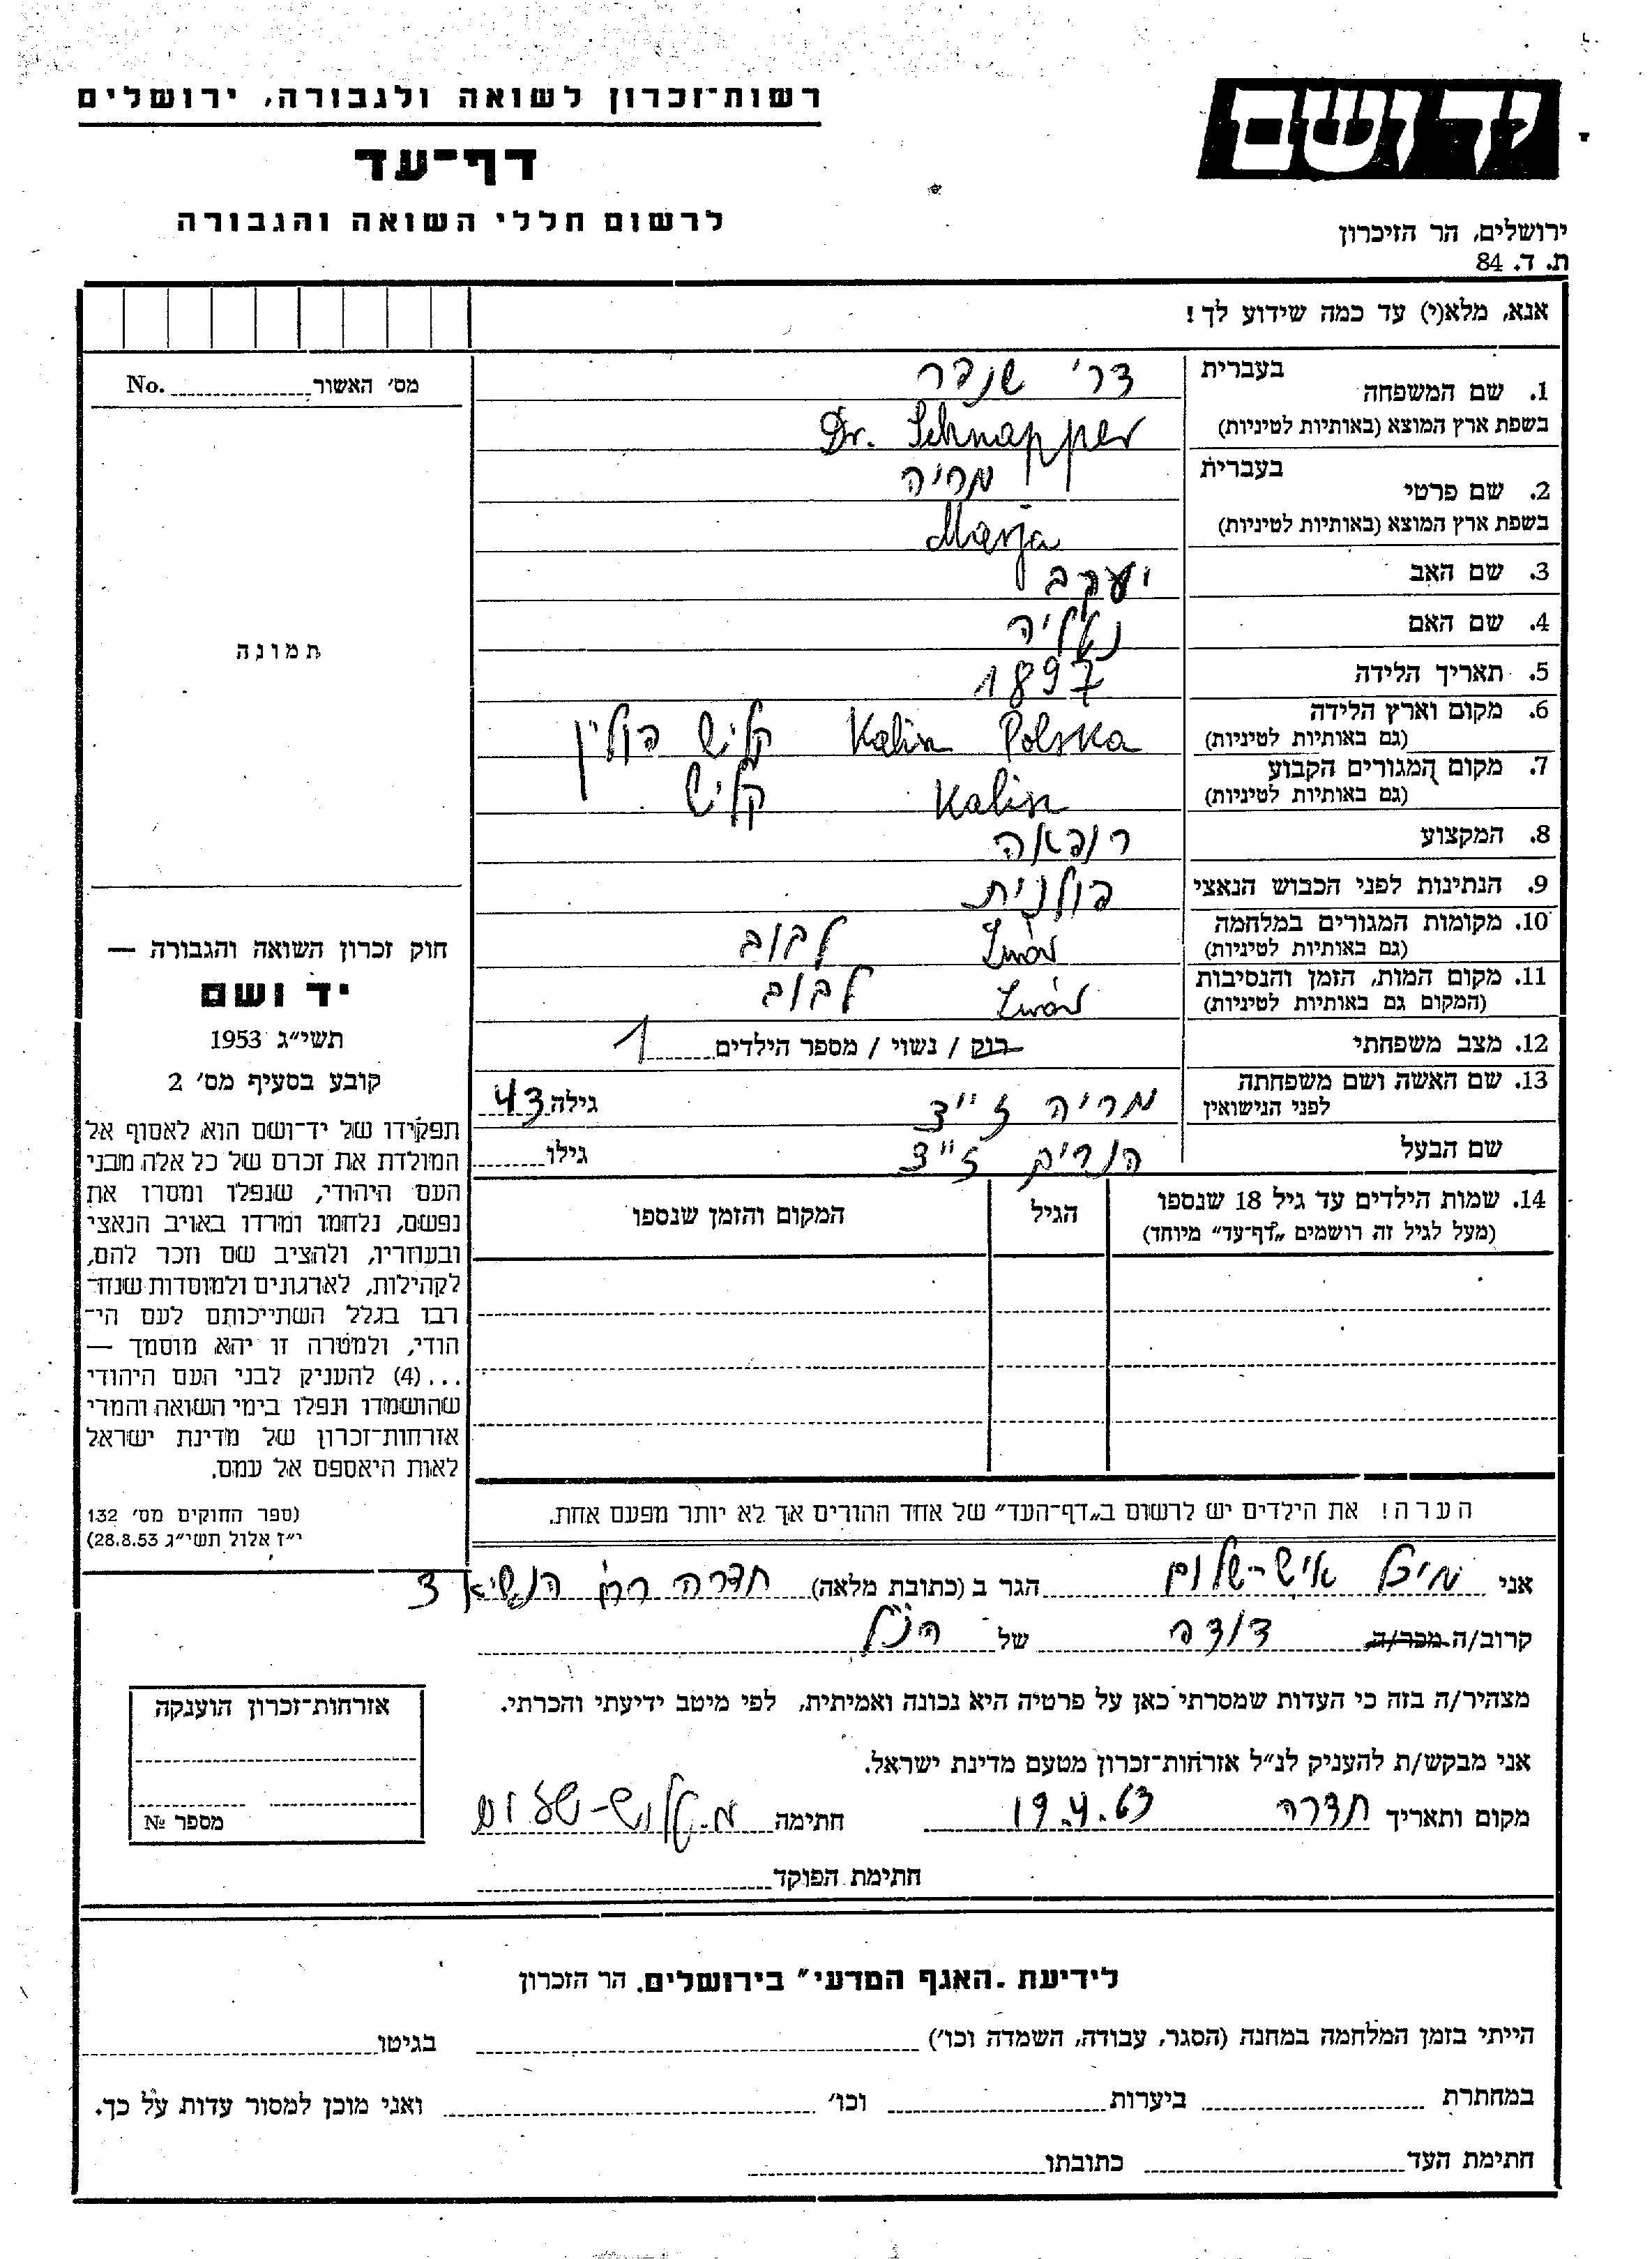 רשות־זכרון לשואה ולגבורה, ירושלים
דף־עד
לרשום חללי השואה והגבורה
יד ושם
ירושלים, הר הזיכרון
ת. ד. 84
אנא, מלא(י) עד כמה שידוע לך!
מס׳ האשור No.
תמונה
1. שם המשפחה
בעברית
בשפת ארץ המוצא (באותיות לטיניות)
Dr. Schnapper
2. שם פרטי
בעברית מריה
בשפת ארץ המוצא (באותיות לטיניות) Marja
3. שם האב יעקב
4. שם האם נטליה
5. תאריך הלידה 1897
6. מקום וארץ הלידה Kalisz Polska קליש פולין
(גם באותיות לטיניות)
7. מקום המגורים הקבוע Kalisz קליש
(גם באותיות לטיניות)
8. המקצוע רופאה
9. הנתינות לפני הכבוש הנאצי פולנית
10. מקומות המגורים במלחמה Lwów לבוב
(גם באותיות לטיניות)
11. מקום המות, הזמן והנסיבות Lwów לבוב
(המקום גם באותיות לטיניות)
12. מצב משפחתי רוק / נשוי / מספר הילדים 1
13. שם האשה ושם משפחתה מריה זייד גילה 43
לפני הנישואין
שם הבעל הנריק זייד גילו
14. שמות הילדים עד גיל 18 שנספו
(מעל לגיל זה רושמים „דף־עד״ מיוחד)
הגיל
המקום והזמן שנספו
חוק זכרון השואה והגבורה —
יד ושם
תשי״ג 1953
קובע בסעיף מס׳ 2
תפקידו של יד־ושם הוא לאסוף אל
המולדת את זכרם של כל אלה מבני
העם היהודי, שנפלו ומסרו את
נפשם, נלחמו ומרדו באויב הנאצי
ובעוזריו, ולהציב שם וזכר להם,
לקהילות, לארגונים ולמוסדות שנח־
רבו בגלל השתייכותם לעם הי־
הודי, ולמטרה זו יהא מוסמך —
...(4) להעניק לבני העם היהודי
שהושמדו ונפלו בימי השואה והמרי
אזרחות־זכרון של מדינת ישראל
לאות היאספם אל עמם.
(ספר החוקים מס׳ 132
י״ז אלול תשי״ג 28.8.53)
הערה! את הילדים יש לרשום ב„דף־העד״ של אחד ההורים אך לא יותר מפעם אחת.
אני מיכל איש-שלום הגר ב (כתובת מלאה) חדרה רח׳ הנשיא 3
קרוב/ה מכר/ה דודה של הנ״ל
מצהיר/ה בזה כי העדות שמסרתי כאן על פרטיה היא נכונה ואמיתית, לפי מיטב ידיעתי והכרתי.
אני מבקש/ת להעניק לנ״ל אזרחות־זכרון מטעם מדינת ישראל.
מקום ותאריך חדרה 19.4.63 חתימה מ. איש-שלום
חתימת הפוקד
אזרחות־זכרון הוענקה
מספר №
לידיעת „האגף המדעי״ בירושלים. הר הזכרון
הייתי בזמן המלחמה במחנה (הסגר, עבודה, השמדה וכו׳) בגיטו
במחתרת ביערות וכו׳ ואני מוכן למסור עדות על כך.
חתימת העד כתובתו